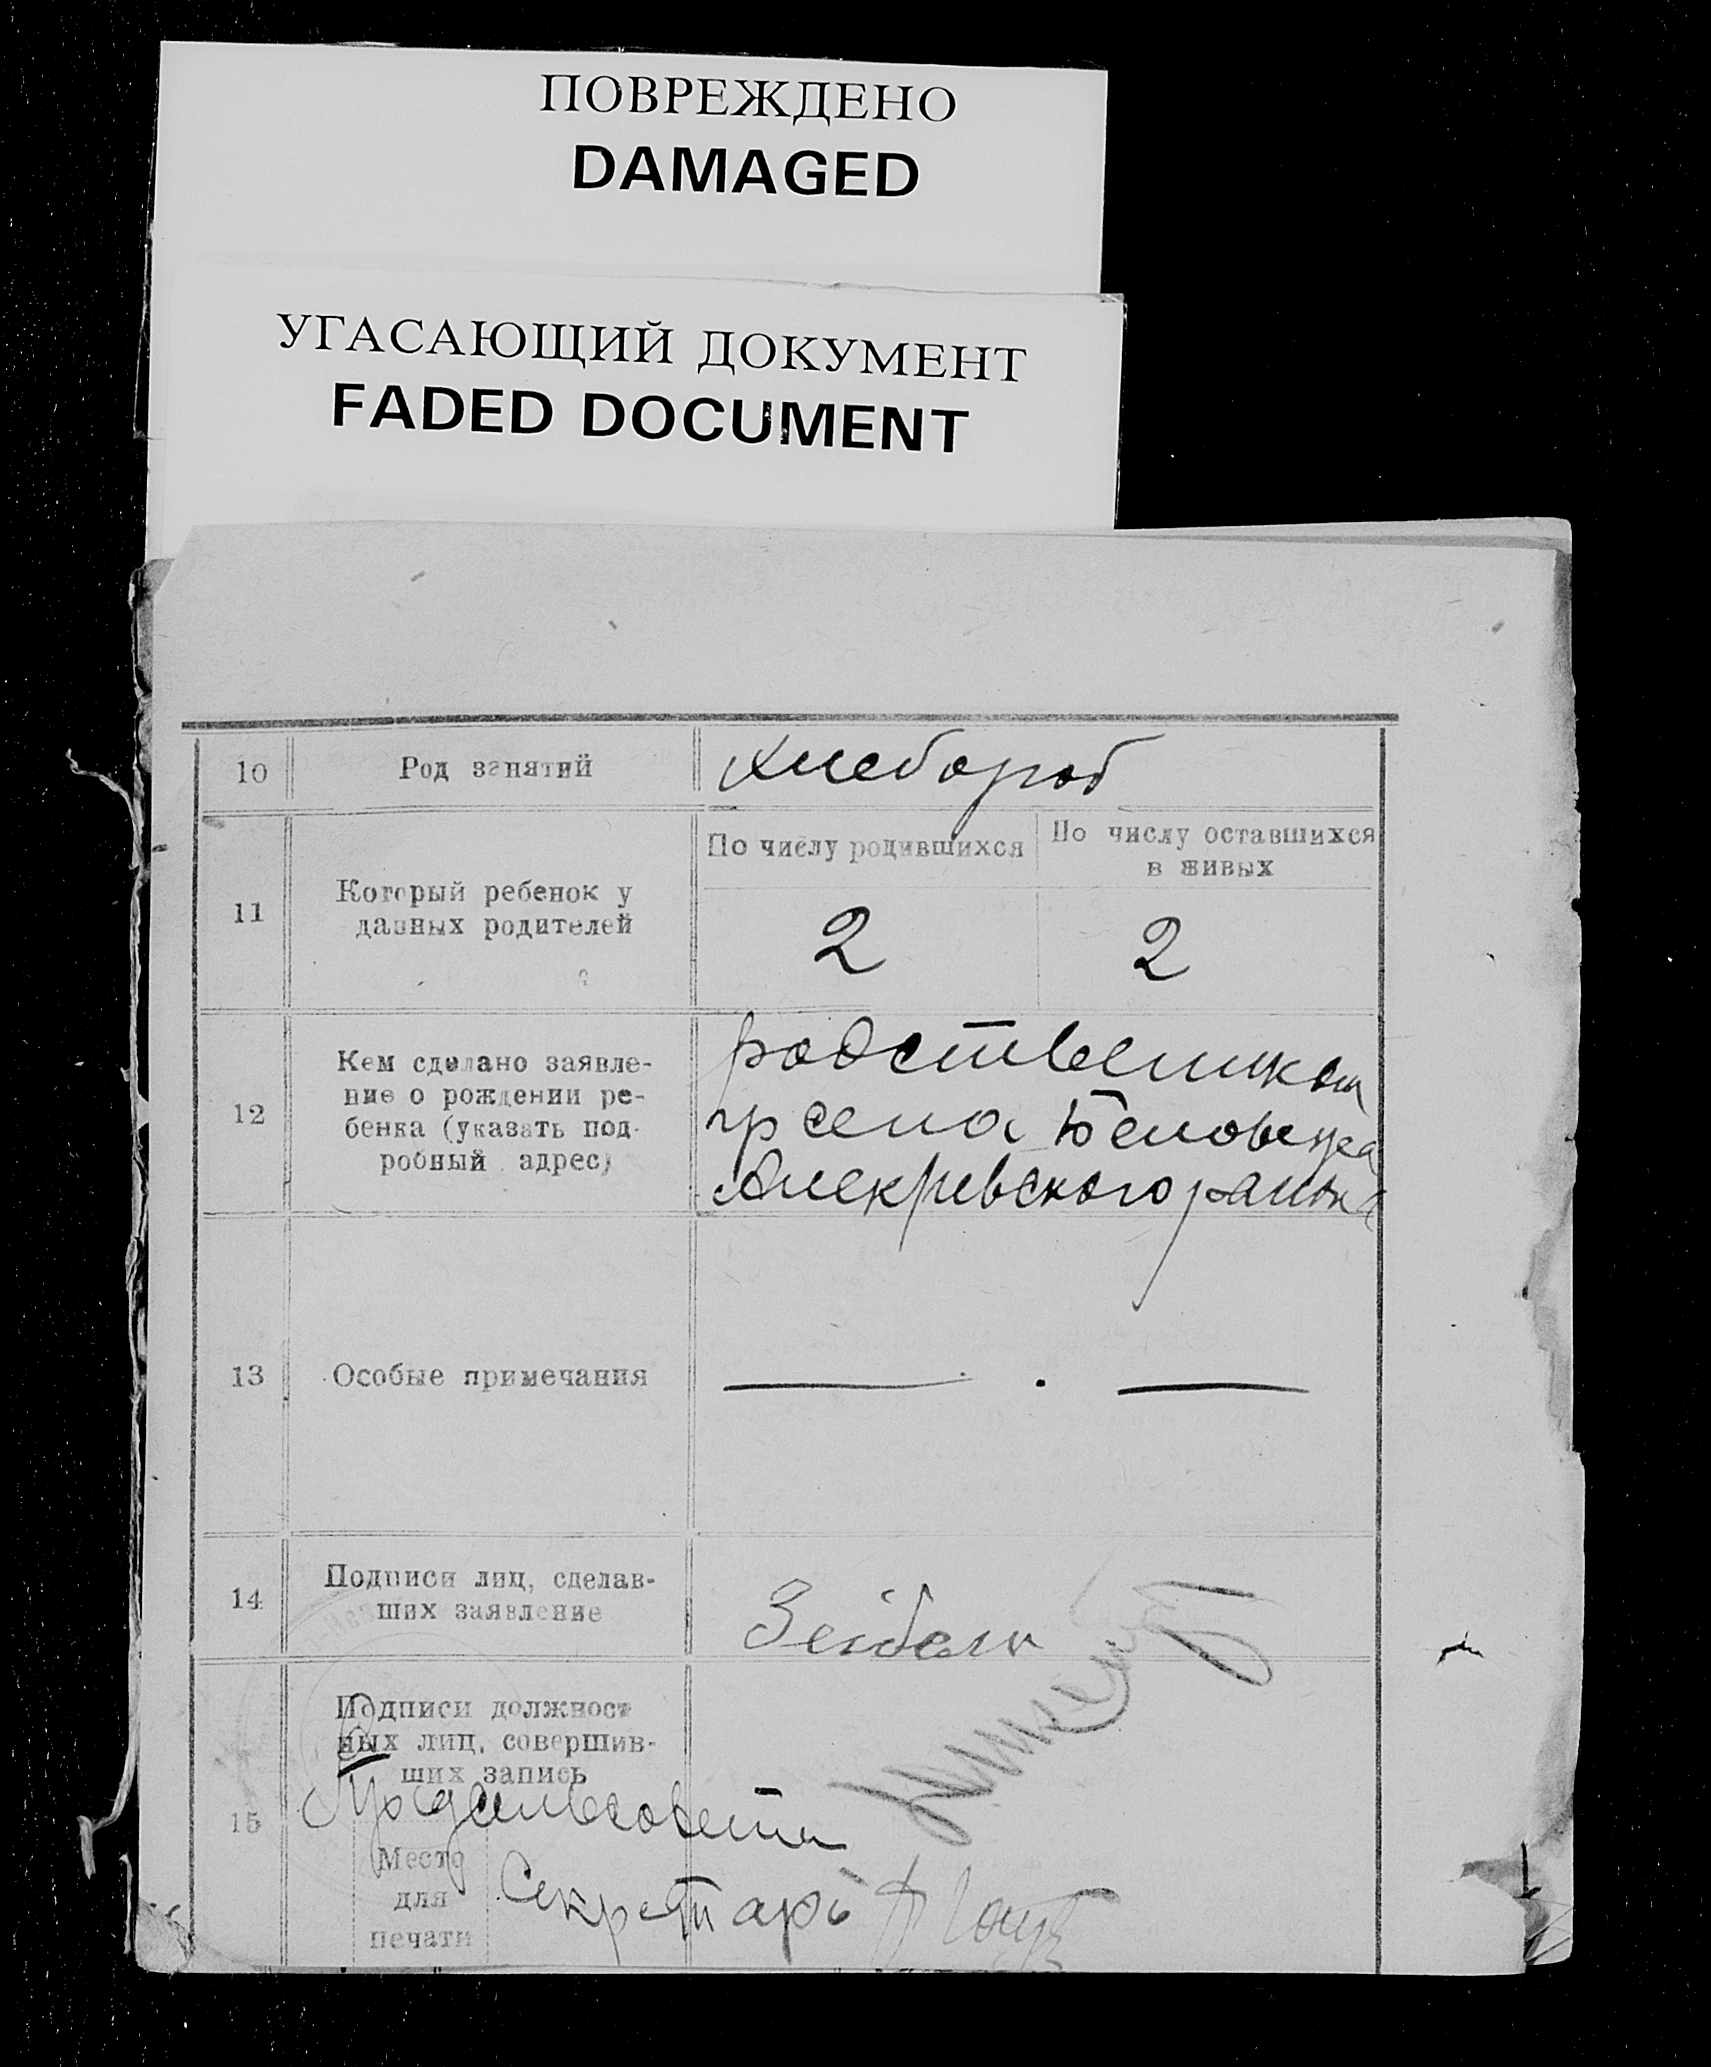 ПОВРЕЖДЕНО
DAMAGED
УГАСАЮЩИЙ ДОКУМЕНТ
FADED DOCUMENT
10 Род занятий хлебороб
11 Который ребенок у данных родителей
По числу родившихся
По числу оставшихся
в живых
2 2
12
Кем сделано заявле-
ние о рождении ре-
бенка (указать под-
робный адрес)
родственником
гр села Беловежа
района
13 Особые примечания — . —
14
Подписи лиц, сделав-
ших заявление
Зейбель
15
Подписи должност
ных лиц, совершив-
ших запись
Место
для
печати
Секретарь